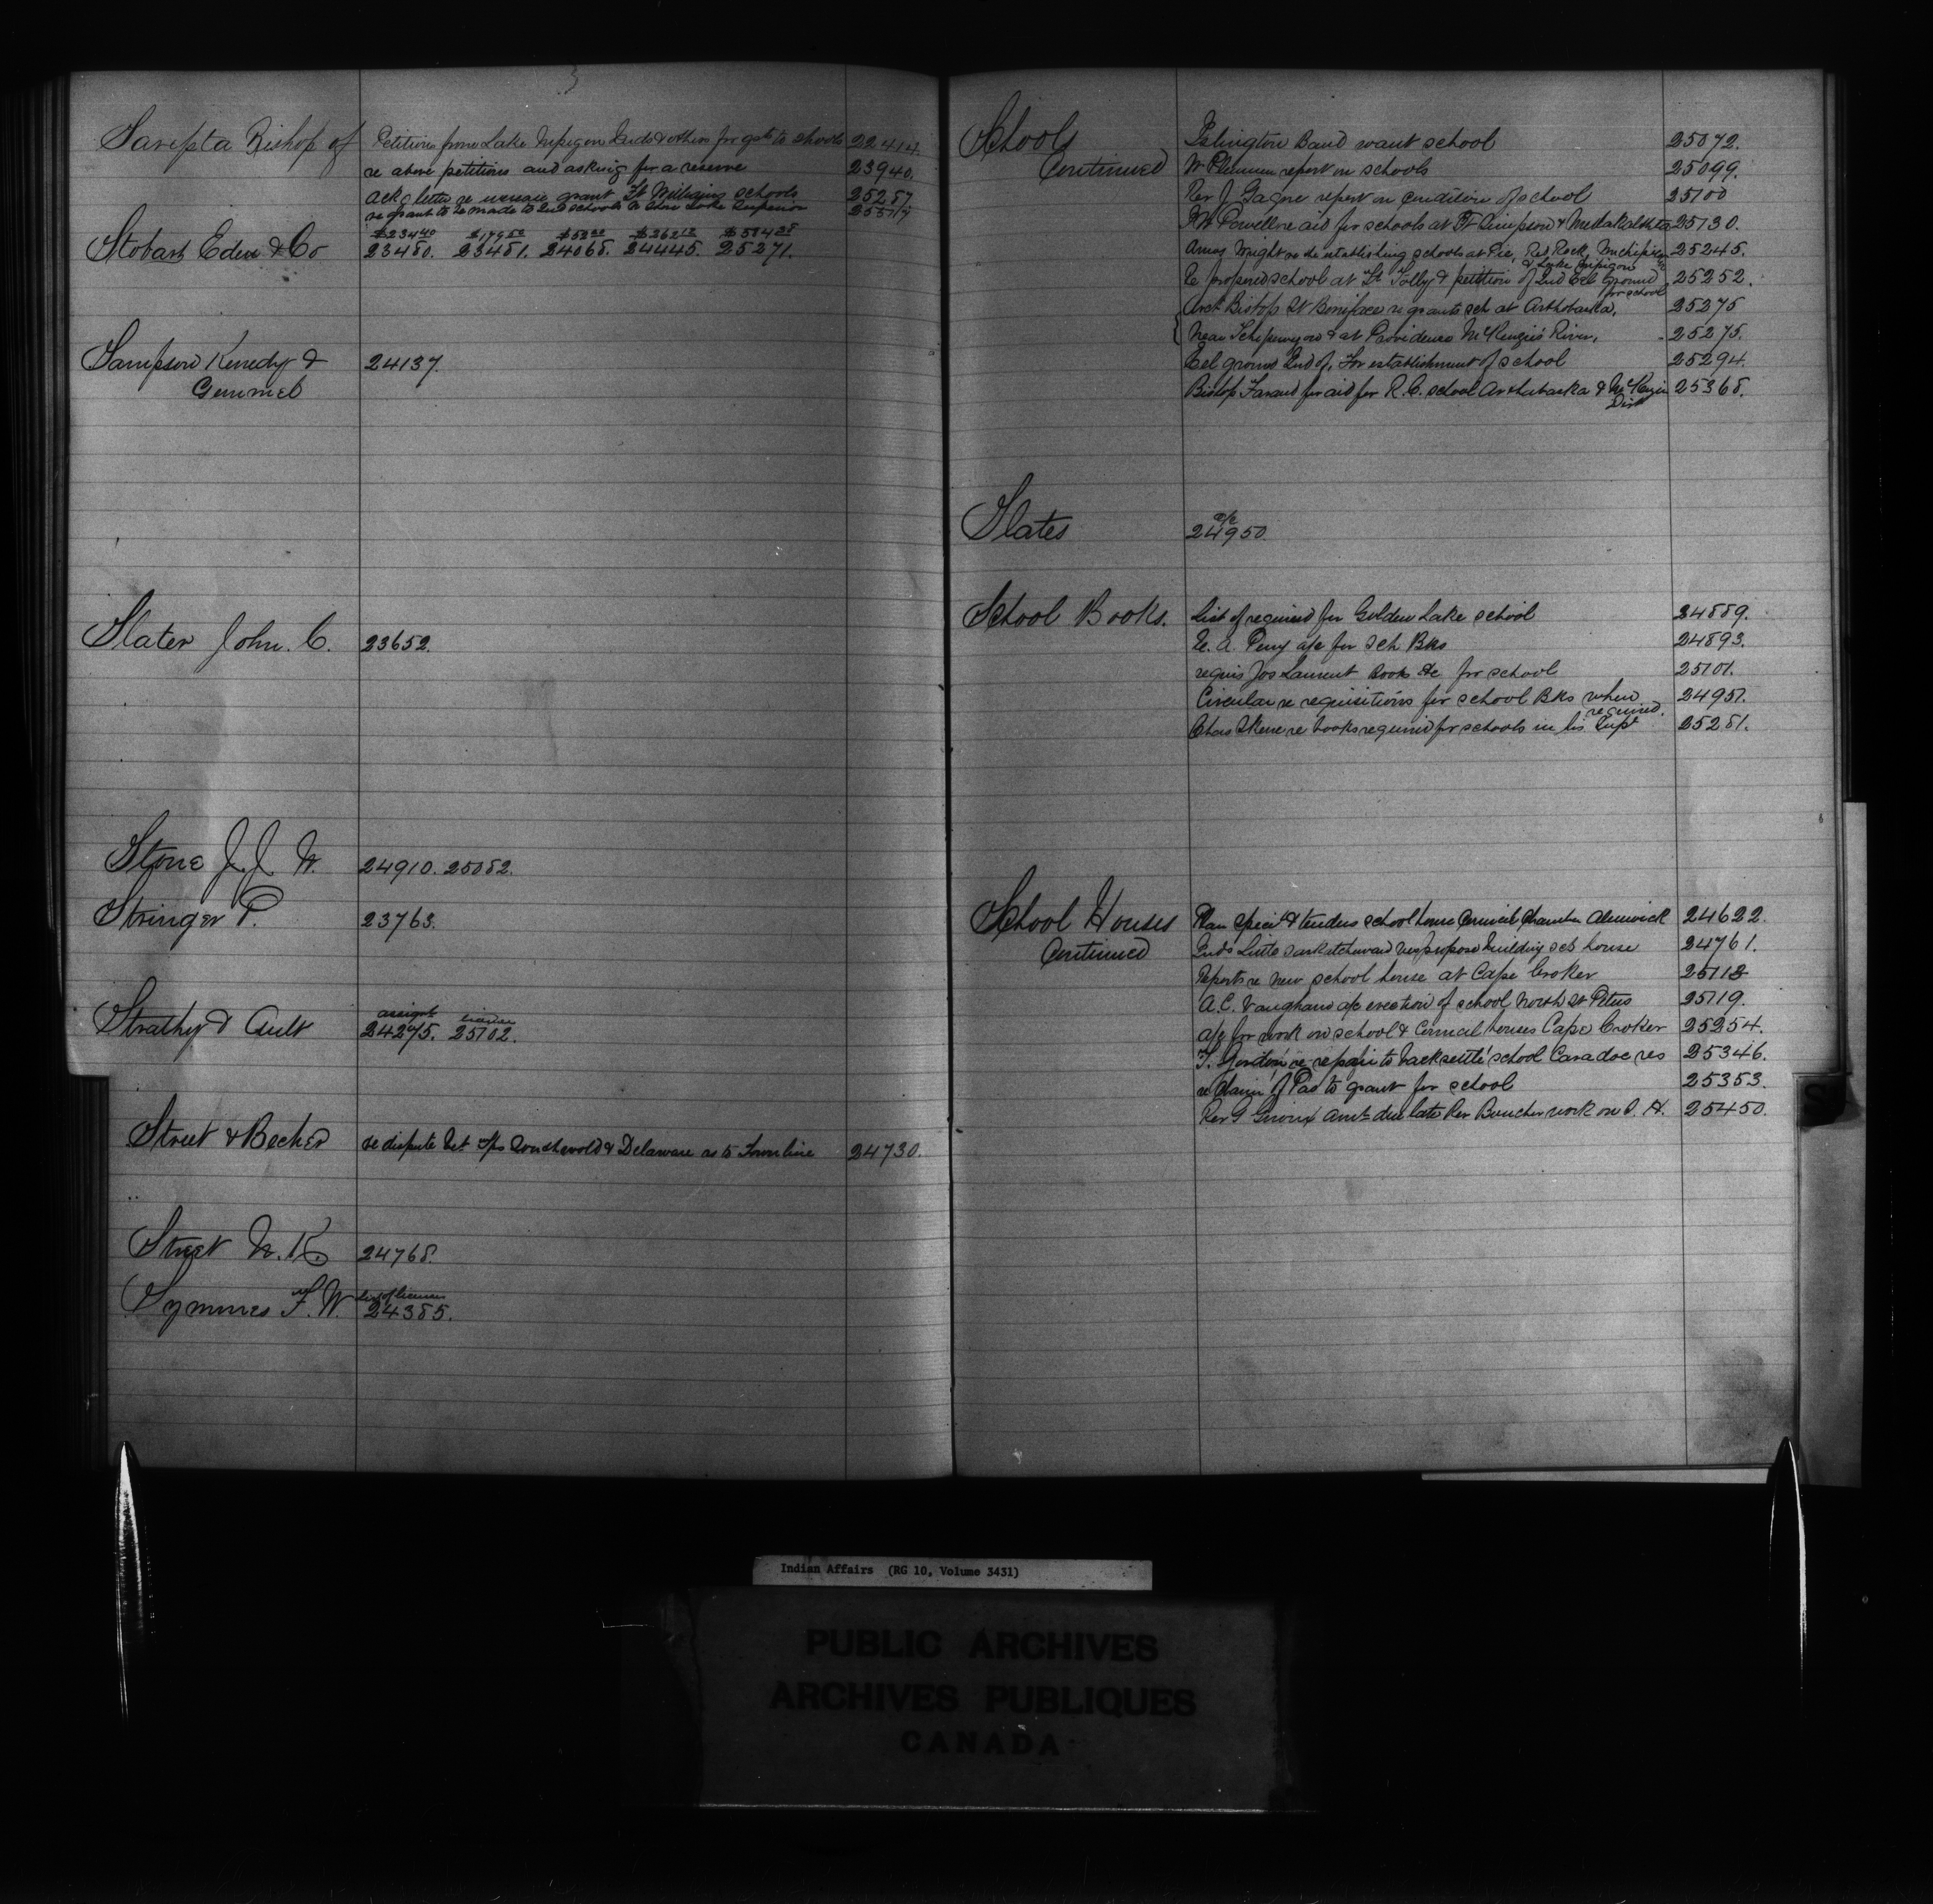 Sarepta Bishop of Petition from Lake Nepigon Inds & others for gt to schools 22414.
re above petitions and asking for a reserve 23940.
Ack letter re increase grant Ft William schools 25257
re grant to be made to Ind schools on Lake Superior
$234.40 $179.50 $362.12
Stobart Eden & Co 23480. 23481. 24068. 24445. 25271.
Sampson Kenedy & 24137.
Gemmel
Slater John. C. 23652.
Stone J. J. W. 24910. 25052.
Stringer P. 23763.
assignt
Strathy & Ault 24275. 25102.
Street & Becher re dispute bet. Tps Southwold & Delaware as to Town line 24730.
Street W. K. 24768.
list of licenses
Symmes F. W. 24385.
Schools Islington Band want school 25072.
Continued W Plummer report on schools 25099.
Rev J Gagne report on condition of school 25100
W Powell re aid for schools at Ft Simpson & Metlakahtla 25130.
Amos Wright re the establishing schools at Pic, Red Rock, Michipicoten 25245.
& Lake Nepigon
Re proposed school at & petition of Ind Eel Ground 25252.
for school
Arch Bishop St Boniface re grants sch at Arthabaska, 25275
Near Chipewyan & at Providence McKenzie River, 25275.
Eel ground Ind of, For establishment of school 25294.
Bishop Faraud for aid for R. C. school Arthabaska & McKenzie 25368.
Dist
a/c
Slates 24950.
School Books. List of required for Golden Lake school 24889.
E. A. Perry a/c for Sch Bks 24893.
requis Jos Laurent Books &c for school 25101.
Circular re requisitions for school Bks when 24951.
required.
Chas Skene re books required for schools in his Supt 25281.
School Houses Plan Speci & tenders school house Council Chamber Alnwick 24622.
Continued Inds Little Saskatchewan propose building sch house 24761.
Reports re new school house at Cape Croker 25112
A. C. Vaughans a/c erection of school North St Peters 25119.
a/c for work on school & Council houses Cape Croker 25254.
T. Gordon re repair to back settlt school Caradoc res 25346.
re claim of Pas to grant for school 25353.
Rev G Giroux amt due late Rev Boucher work on S. H. 25450.
Indian Affairs (RG 10, Volume 3431)
PUBLIC ARCHIVES
ARCHIVES PUBLIQUES
CANADA